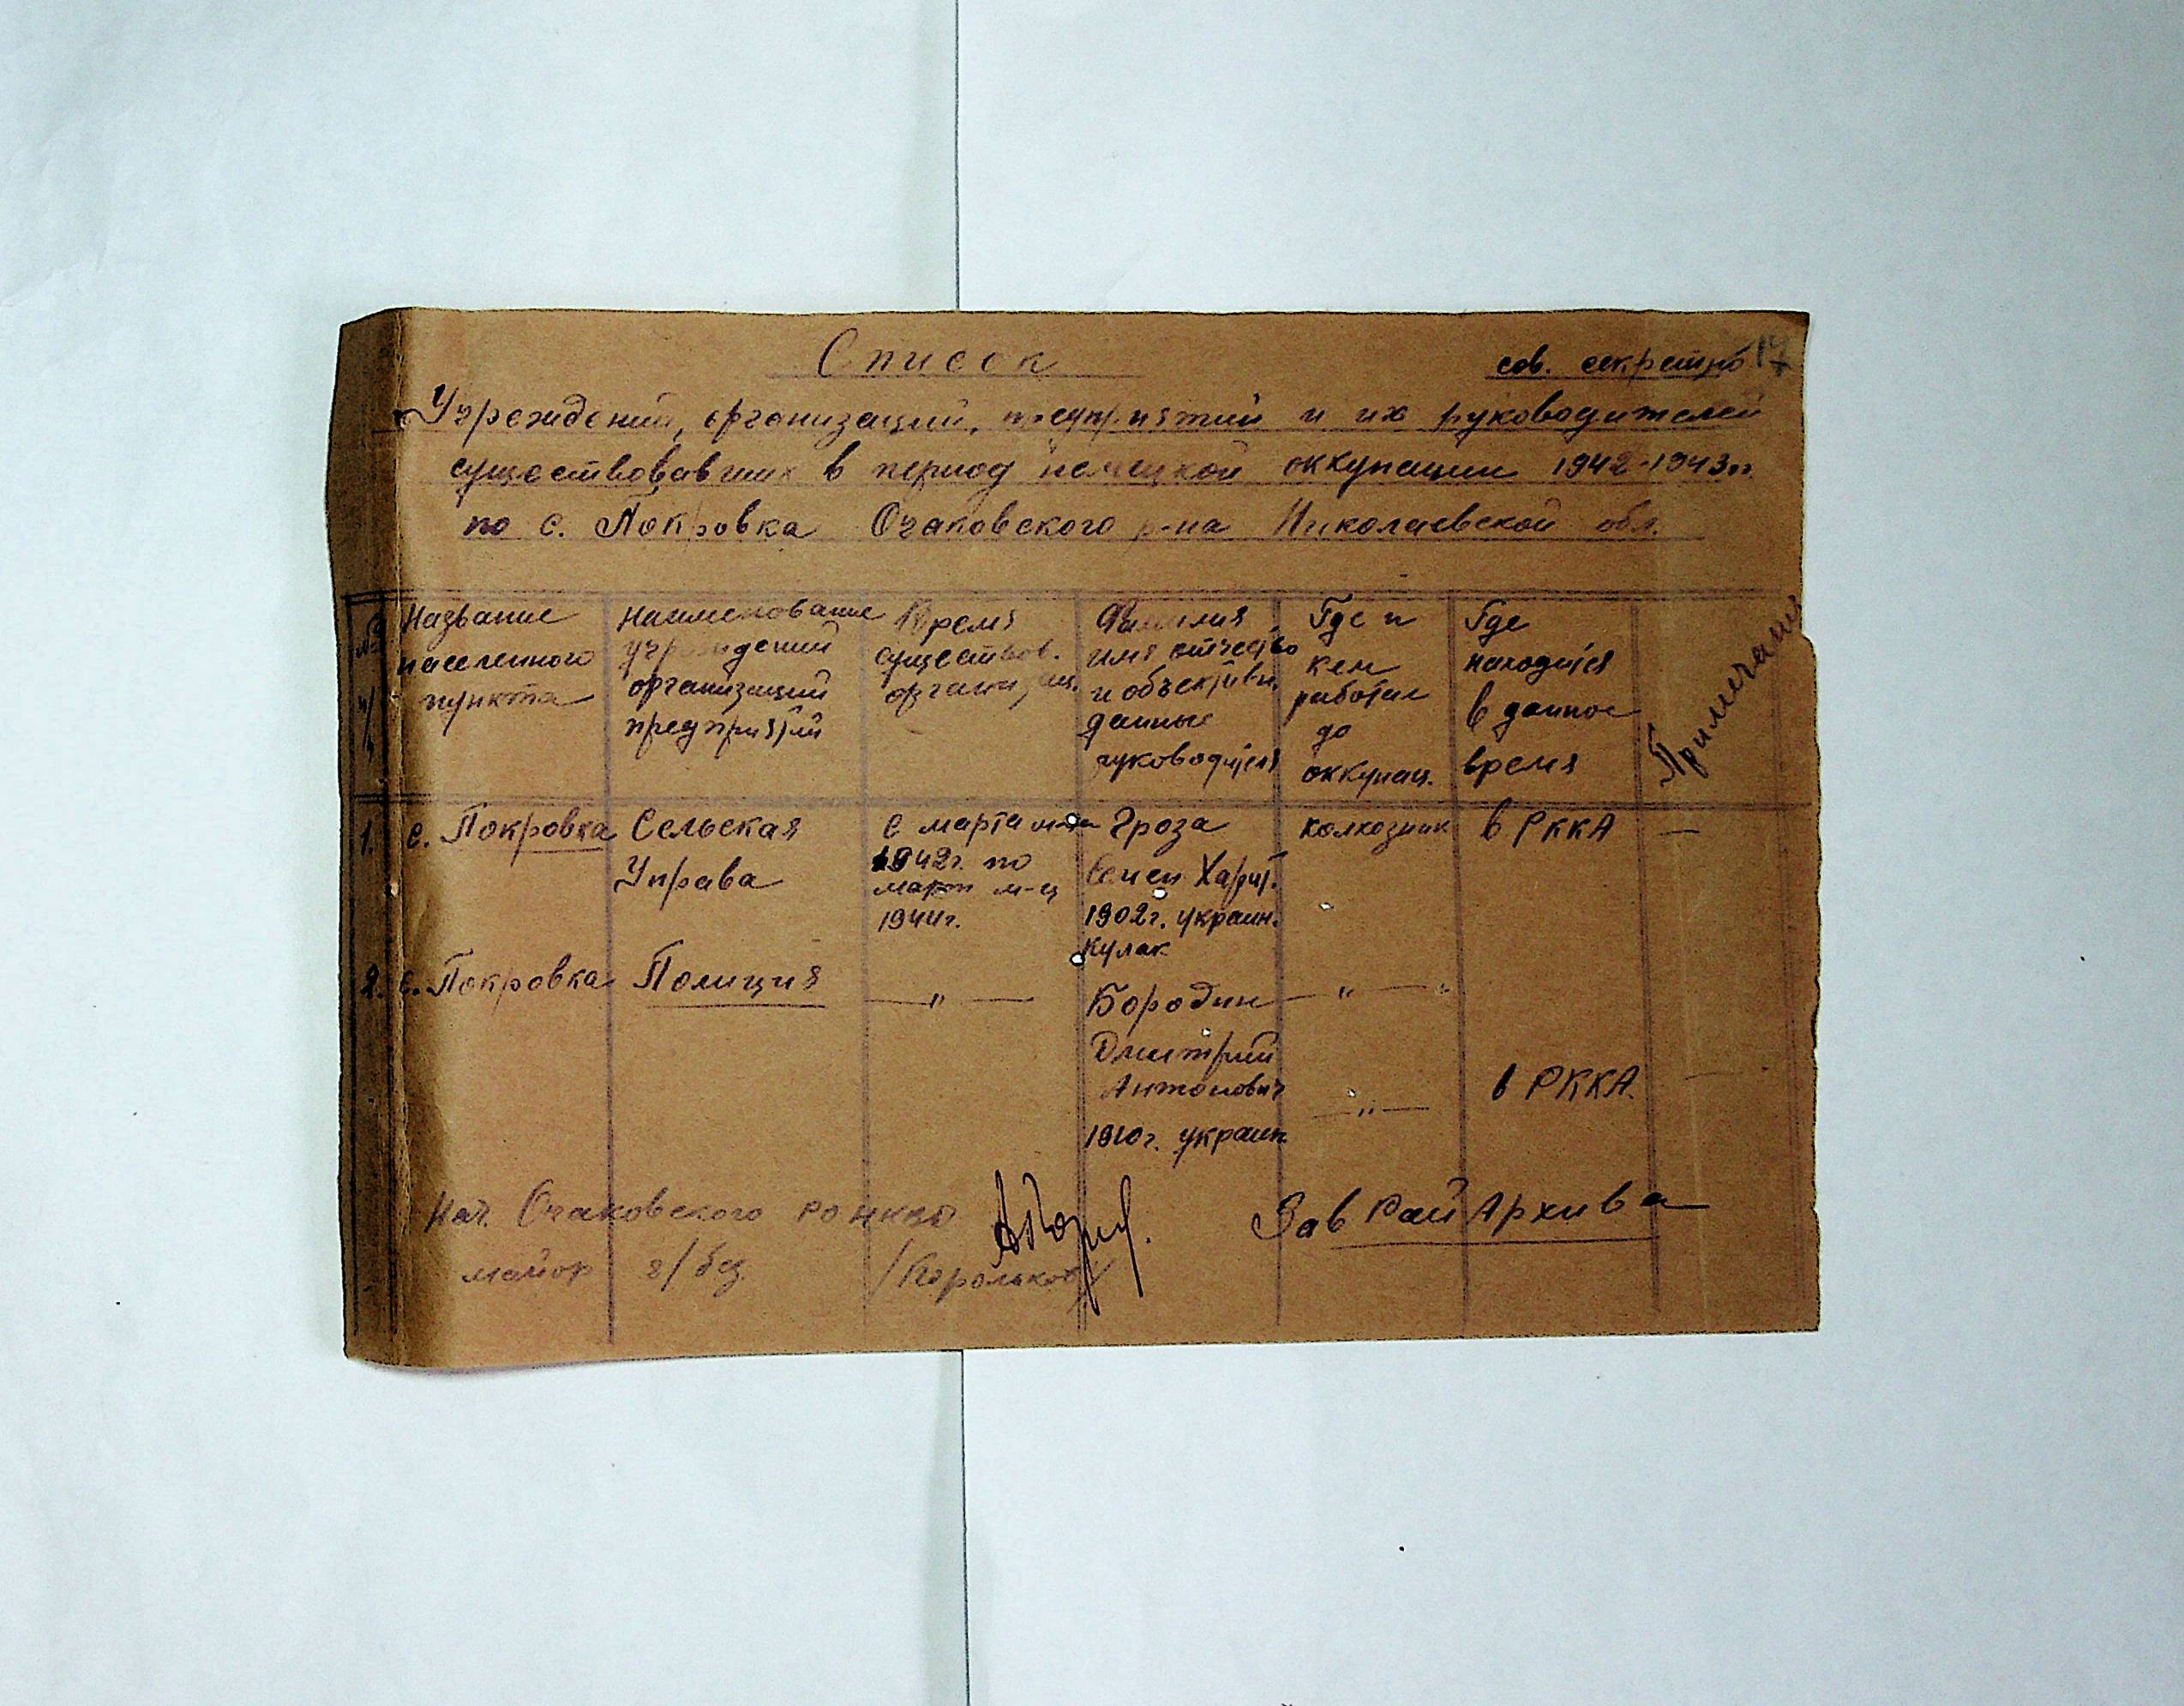 Список
сов. секретно 17
Учреждений, организаций, предприятий и их руководителей
существовавших в период немецкой оккупации 1942-1943гг.
по с. Покровка Очаковского р-на Николаевской обл.
№ п/п
Название населенного пункта
Наименование учреждений организаций предприятий
Время существов. организац.
Фамилия имя отчество и объективн. данные руководителя
Где и кем работал до оккупац.
Где находится в данное время
Примечание
1. с. Покровка
Сельская
Управа
с марта м-ца
1942г. по
март м-ц
1944г.
Гроза
Семен Харит.
1902г. украин.
кулак
колхозник
в РККА
—
2. с. Покровка
Полиция
— " —
Бородин
Дмитрий
Антонович
1910г. украин.
— " —
— " —
в РККА.
—
Нач. Очаковского РО НКВД
майор г/без. /Корольков/
Зав РайАрхива